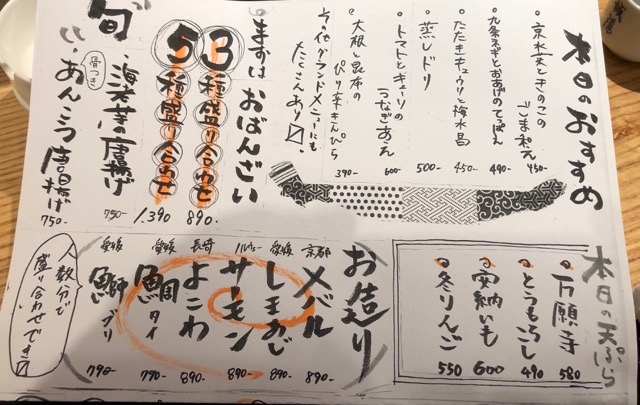 本日のおすすめ
・京水菜ときのこのごま和え 450-
・九条ネギとおあげのてっぱん 490-
・たたきキュウリと梅水晶 450-
・蒸しドリ 500-
・トマトとキューリのうなぎあえ 600-
・大根と昆布のぴり辛きんぴら 390-
その他グランドメニューにも
たくさんあり〼。
まずは おばんざい
3種盛り合わせ 890-
5種盛り合わせ 1.390
旬
・海老芋の唐揚げ 750-
骨つき
・あんこう唐揚げ 750-
本日の天ぷら
・万願寺 580
・とうもろこし 490
・安納いも 600
・冬りんご 550
お造り
京都 メバル 890-
愛媛 しまあじ 890-
ノルウェー サーモン 890-
長崎 よこわ 890-
愛媛 鯛 タイ 790-
愛媛 鰤 ブリ 790-
人数分で
盛り合わせでき〼